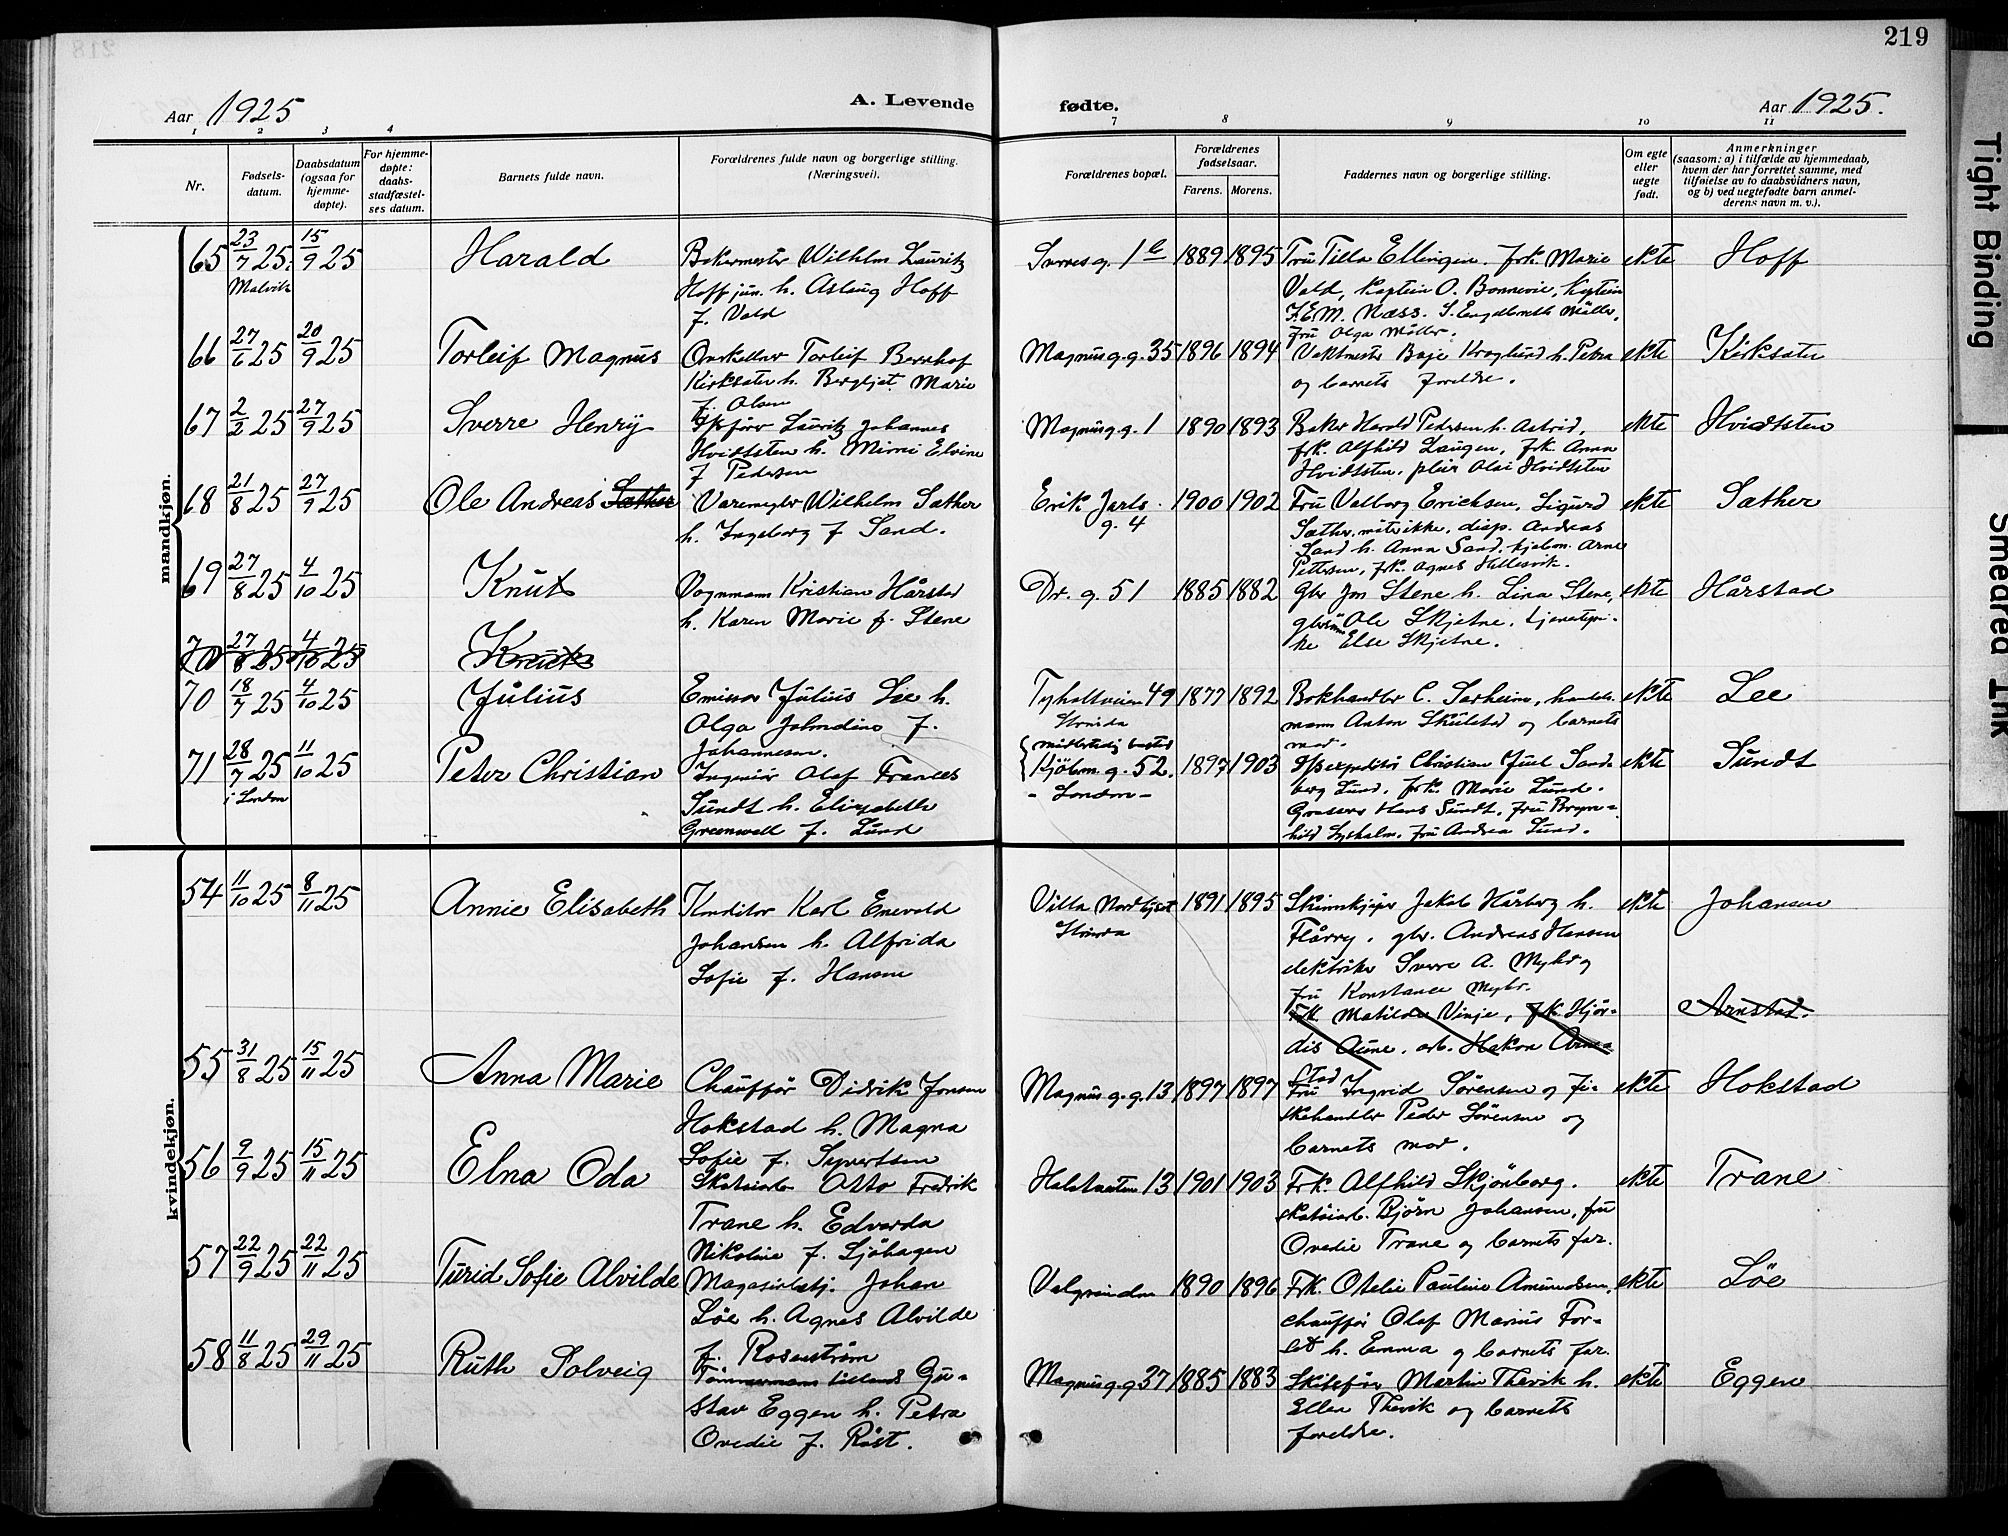 219
Aar 1925
A. Levende fødte.
Aar 1925.
1 2 3 4 7 8 9 10 11
Nr.
Fødsels-
datum.
Daabsdatum
(ogsaa for
hjemme-
døpte).
For hjemme-
døpte:
daabs-
stadfæstel-
ses datum.
Barnets fulde navn.
Forældrenes fulde navn og borgerlige stilling.
(Næringsvei).
Forældrenes bopæl.
Forældrenes
fødselsaar.
Farens. Morens.
Faddernes navn og borgerlige stilling.
Om egte
eller
uegte
født.
Anmerkninger
(saasom: a) i tilfælde av hjemmedaab,
hvem der har forrettet samme, med
tilføielse av to daabsvidners navn,
og b) ved uegtefødte barn anmel-
derens navn m. v.).
mandkjøn.
65 23/7 25. 15/9 25 Harald Bakermester Wilhelm Lauritz 1889 1895 Fru Tilla Ellingen. frk. Marie ekte Hoff
Malvik Hoff jun. h. Aslaug Hoff Vold, kaptein O. Bonnevie, kaptein
f. Vold J.E.M. Næss. S. Engelbreth Müller,
Fru Olga Müller.
66 27/6 25 20/9 25 Torleif Magnus Torleif Bernhof Magnus g.g. 35 1896 1894 Vaktmester Kroglund h. Petra ekte Kirksæter
Kirksæter h. Bergljot Marie og barnets foreldre.
f. Olsen
67 2/2 25 27/9 25 Sverre Henry Lauritz Johannes Magnus g.g. 1 1890 1893 Baker Harald Pedersen h. Astrid, ekte Hvidtsten
Hvidtsten h. Mimmi Elvine frk. Alfhild Langen, frk. Anna
f Pedersen Hvidtsten, Hvidtsten
68 21/8 25 27/9 25 Ole Andreas Sæther Varemegler Wilhelm Sæther Erik Jarls 1900 1902 Fru Valborg Erichsen, Sigurd ekte Sæther
h. Ingeborg f Sand. g. 4 Sæther, disp. Andreas
Sand h. Anna Sand, kjøbm. Arne
Pettersen, frk. Agnes
69 27/8 25 4/10 25 Knut Vognmann Kristian Hårstad Dr. g. 51 1885 1882 Gbr Jon Stene h. Lina Stene, ekte Hårstad
h. Karen Marie f. Stene Ole Skjetne, tjenestepi-
70 27/8 25 4/10 25 Knut ke Else Skjetne.
70 18/7 25 4/10 25 Julius Emissær Julius Lee h. Tyholtveien 49 1877 1892 Bokhandler C. Sørheim, handels- ekte Lee
Olga f. Strinda mann Anton Skulstad og barnets
Johannesen. mor.
71 28/7 25 11/10 25 Peter Christian Ingeniør Olaf Frances midlertidig bosted Kjøbm. g. 52. 1897 1903 Christian Juel Sand- ekte Sundt
i London Sundt h. Elizabeth - London - berg Lund, frk. Marie Lund.
Greenwell f. Lund Grosserer Hans Sundt, fru Bryn-
hild Lysholm, fru Andrea Lund.
kvindekjøn.
54 11/10 25 8/11 25 Annie Elisabeth Konditor Karl Enevold Villa Nordlyset 1891 1895 Jakob Hårberg h. ekte Johansen
Johansen h. Alfrida Strinda gbr. Andreas Hansen
Sofie f. Hansen elektriker Sverre A. Myhr og
fru Konstance Myhr.
Frk. Matilde Vinje, frk. Hjør- Arnstad.
dis Aune, arb. Hakon Arne-
stad
55 31/8 25 15/11 25 Anna Marie Chauffør Didrik Jonsen Magnus g.g. 13 1897 1897 Fru Ingrid Sørensen og fi- ekte Hokstad
Hokstad h. Magna skehandler Peder Sørensen og
Sofie f. Syvertsen barnets mor.
56 9/9 25 15/11 25 Elna Oda Skotøiarb Otto Fredrik 13 1901 1903 Frk. Alfhild Skjønberg. ekte Trane
Trane h. Edvarda skotøiarb. Bjørn Johansen, fru
Nikoline f. Sjøhagen Ovedie Trane og barnets far.
57 22/9 25 22/11 25 Turid Sofie Alvilde Johan Valgrinden 1890 1896 Frk. Otelie Pauline Amundsen, ekte Løe
Løe h. Agnes Alvilde chauffør Olaf Marius For-
f. Rosenstrøm h. Emma og barnets far.
58 11/8 25 29/11 25 Ruth Solveig Tømmermann Gu- Magnus g.g 37 1885 1883 Martin Thevik h. ekte Eggen
stav Eggen h. Petra Ellen Thevik og barnets
Ovedie f. Røst. foreldre.
Tight Binding
Smeared Ink